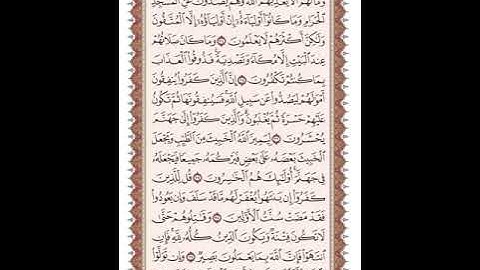 وَمَا لَهُمْ أَلَّا يُعَذِّبَهُمُ ٱللَّهُ وَهُمْ يَصُدُّونَ عَنِ ٱلْمَسْجِدِ
ٱلْحَرَامِ وَمَا كَانُوٓا۟ أَوْلِيَآءَهُۥٓ إِنْ أَوْلِيَآؤُهُۥٓ إِلَّا ٱلْمُتَّقُونَ
وَلَـٰكِنَّ أَكْثَرَهُمْ لَا يَعْلَمُونَ ٣٤ وَمَا كَانَ صَلَاتُهُمْ
عِندَ ٱلْبَيْتِ إِلَّا مُكَآءً وَتَصْدِيَةً فَذُوقُوا۟ ٱلْعَذَابَ
بِمَا كُنتُمْ تَكْفُرُونَ ٣٥ إِنَّ ٱلَّذِينَ كَفَرُوا۟ يُنفِقُونَ
أَمْوَٰلَهُمْ لِيَصُدُّوا۟ عَن سَبِيلِ ٱللَّهِ فَسَيُنفِقُونَهَا ثُمَّ تَكُونُ
عَلَيْهِمْ حَسْرَةً ثُمَّ يُغْلَبُونَ وَٱلَّذِينَ كَفَرُوٓا۟ إِلَىٰ جَهَنَّمَ
يُحْشَرُونَ ٣٦ لِيَمِيزَ ٱللَّهُ ٱلْخَبِيثَ مِنَ ٱلطَّيِّبِ وَيَجْعَلَ
ٱلْخَبِيثَ بَعْضَهُۥ عَلَىٰ بَعْضٍ فَيَرْكُمَهُۥ جَمِيعًا فَيَجْعَلَهُۥ
فِى جَهَنَّمَ أُو۟لَـٰٓئِكَ هُمُ ٱلْخَـٰسِرُونَ ٣٧ قُل لِّلَّذِينَ
كَفَرُوٓا۟ إِن يَنتَهُوا۟ يُغْفَرْ لَهُم مَّا قَدْ سَلَفَ وَإِن يَعُودُوا۟
فَقَدْ مَضَتْ سُنَّتُ ٱلْأَوَّلِينَ ٣٨ وَقَـٰتِلُوهُمْ حَتَّىٰ
لَا تَكُونَ فِتْنَةٌ وَيَكُونَ ٱلدِّينُ كُلُّهُۥ لِلَّهِ فَإِنِ
ٱنتَهَوْا۟ فَإِنَّ ٱللَّهَ بِمَا يَعْمَلُونَ بَصِيرٌ ٣٩ وَإِن تَوَلَّوْا۟